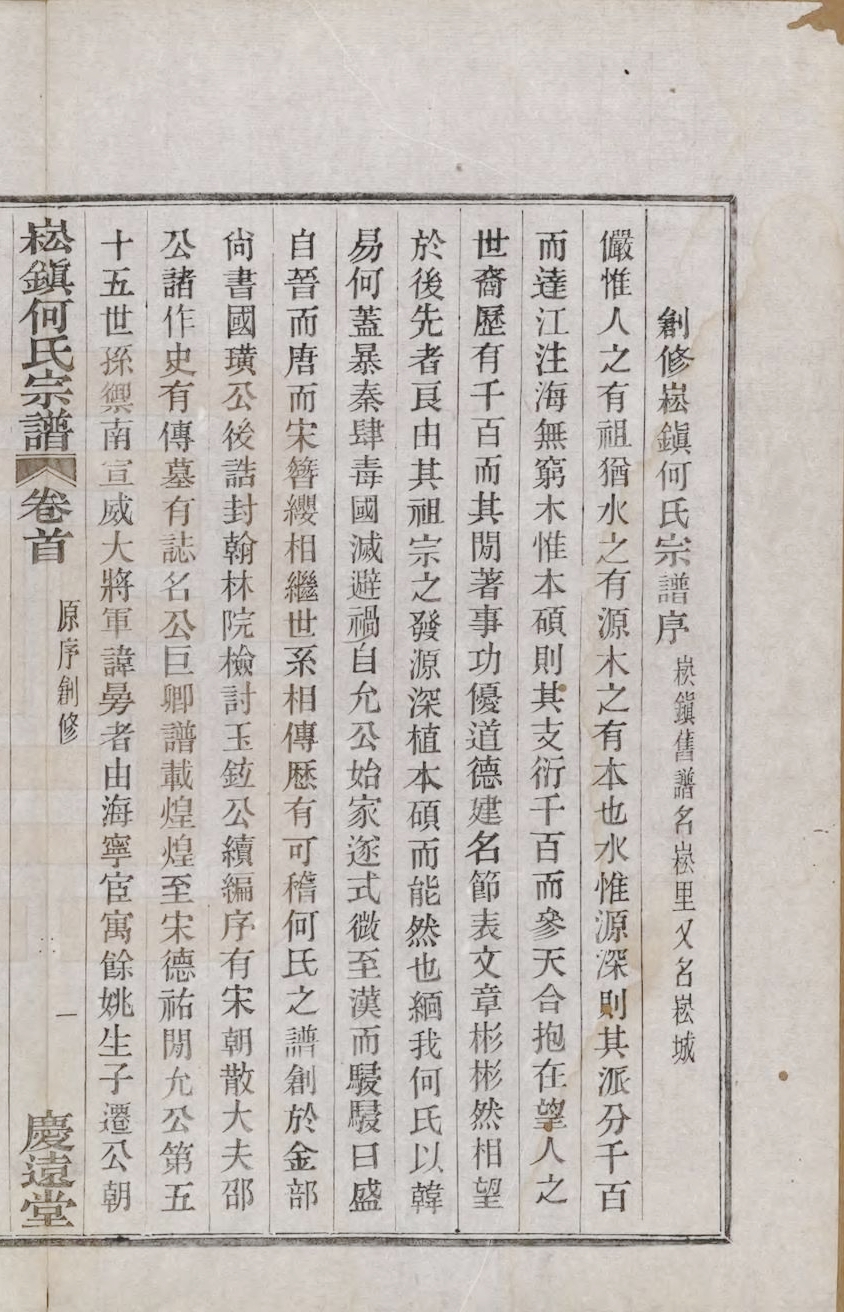 創修崧鎮何氏宗譜序 崧鎮舊譜名崧里又名崧城
儼惟人之有祖猶水之有源木之有本也水惟源深則其派分千百
而達江注海無窮木惟本碩則其支衍千百而參天合抱在望人之
世裔歷有千百而其閒著事功優道德建名節表文章彬彬然相望
於後先者良由其祖宗之發源深植本碩而能然也緬我何氏以韓
易何蓋暴秦肆毒國滅避禍自允公始家逐式微至漢而駸駸曰盛
自晉而唐而宋簪纓相繼世系相傳歷有可稽何氏之譜創於金部
尚書國璜公後誥封翰林院檢討玉鉝公續編序有宋朝散大夫邵
公諸作史有傳墓有誌名公巨卿譜載煌煌至宋德祐閒允公第五
十五世孫禦南宣威大將軍諱昮者由海寧宦寓餘姚生子遷公朝
崧鎮何氏宗譜 卷首 原序創修 一 慶遠堂